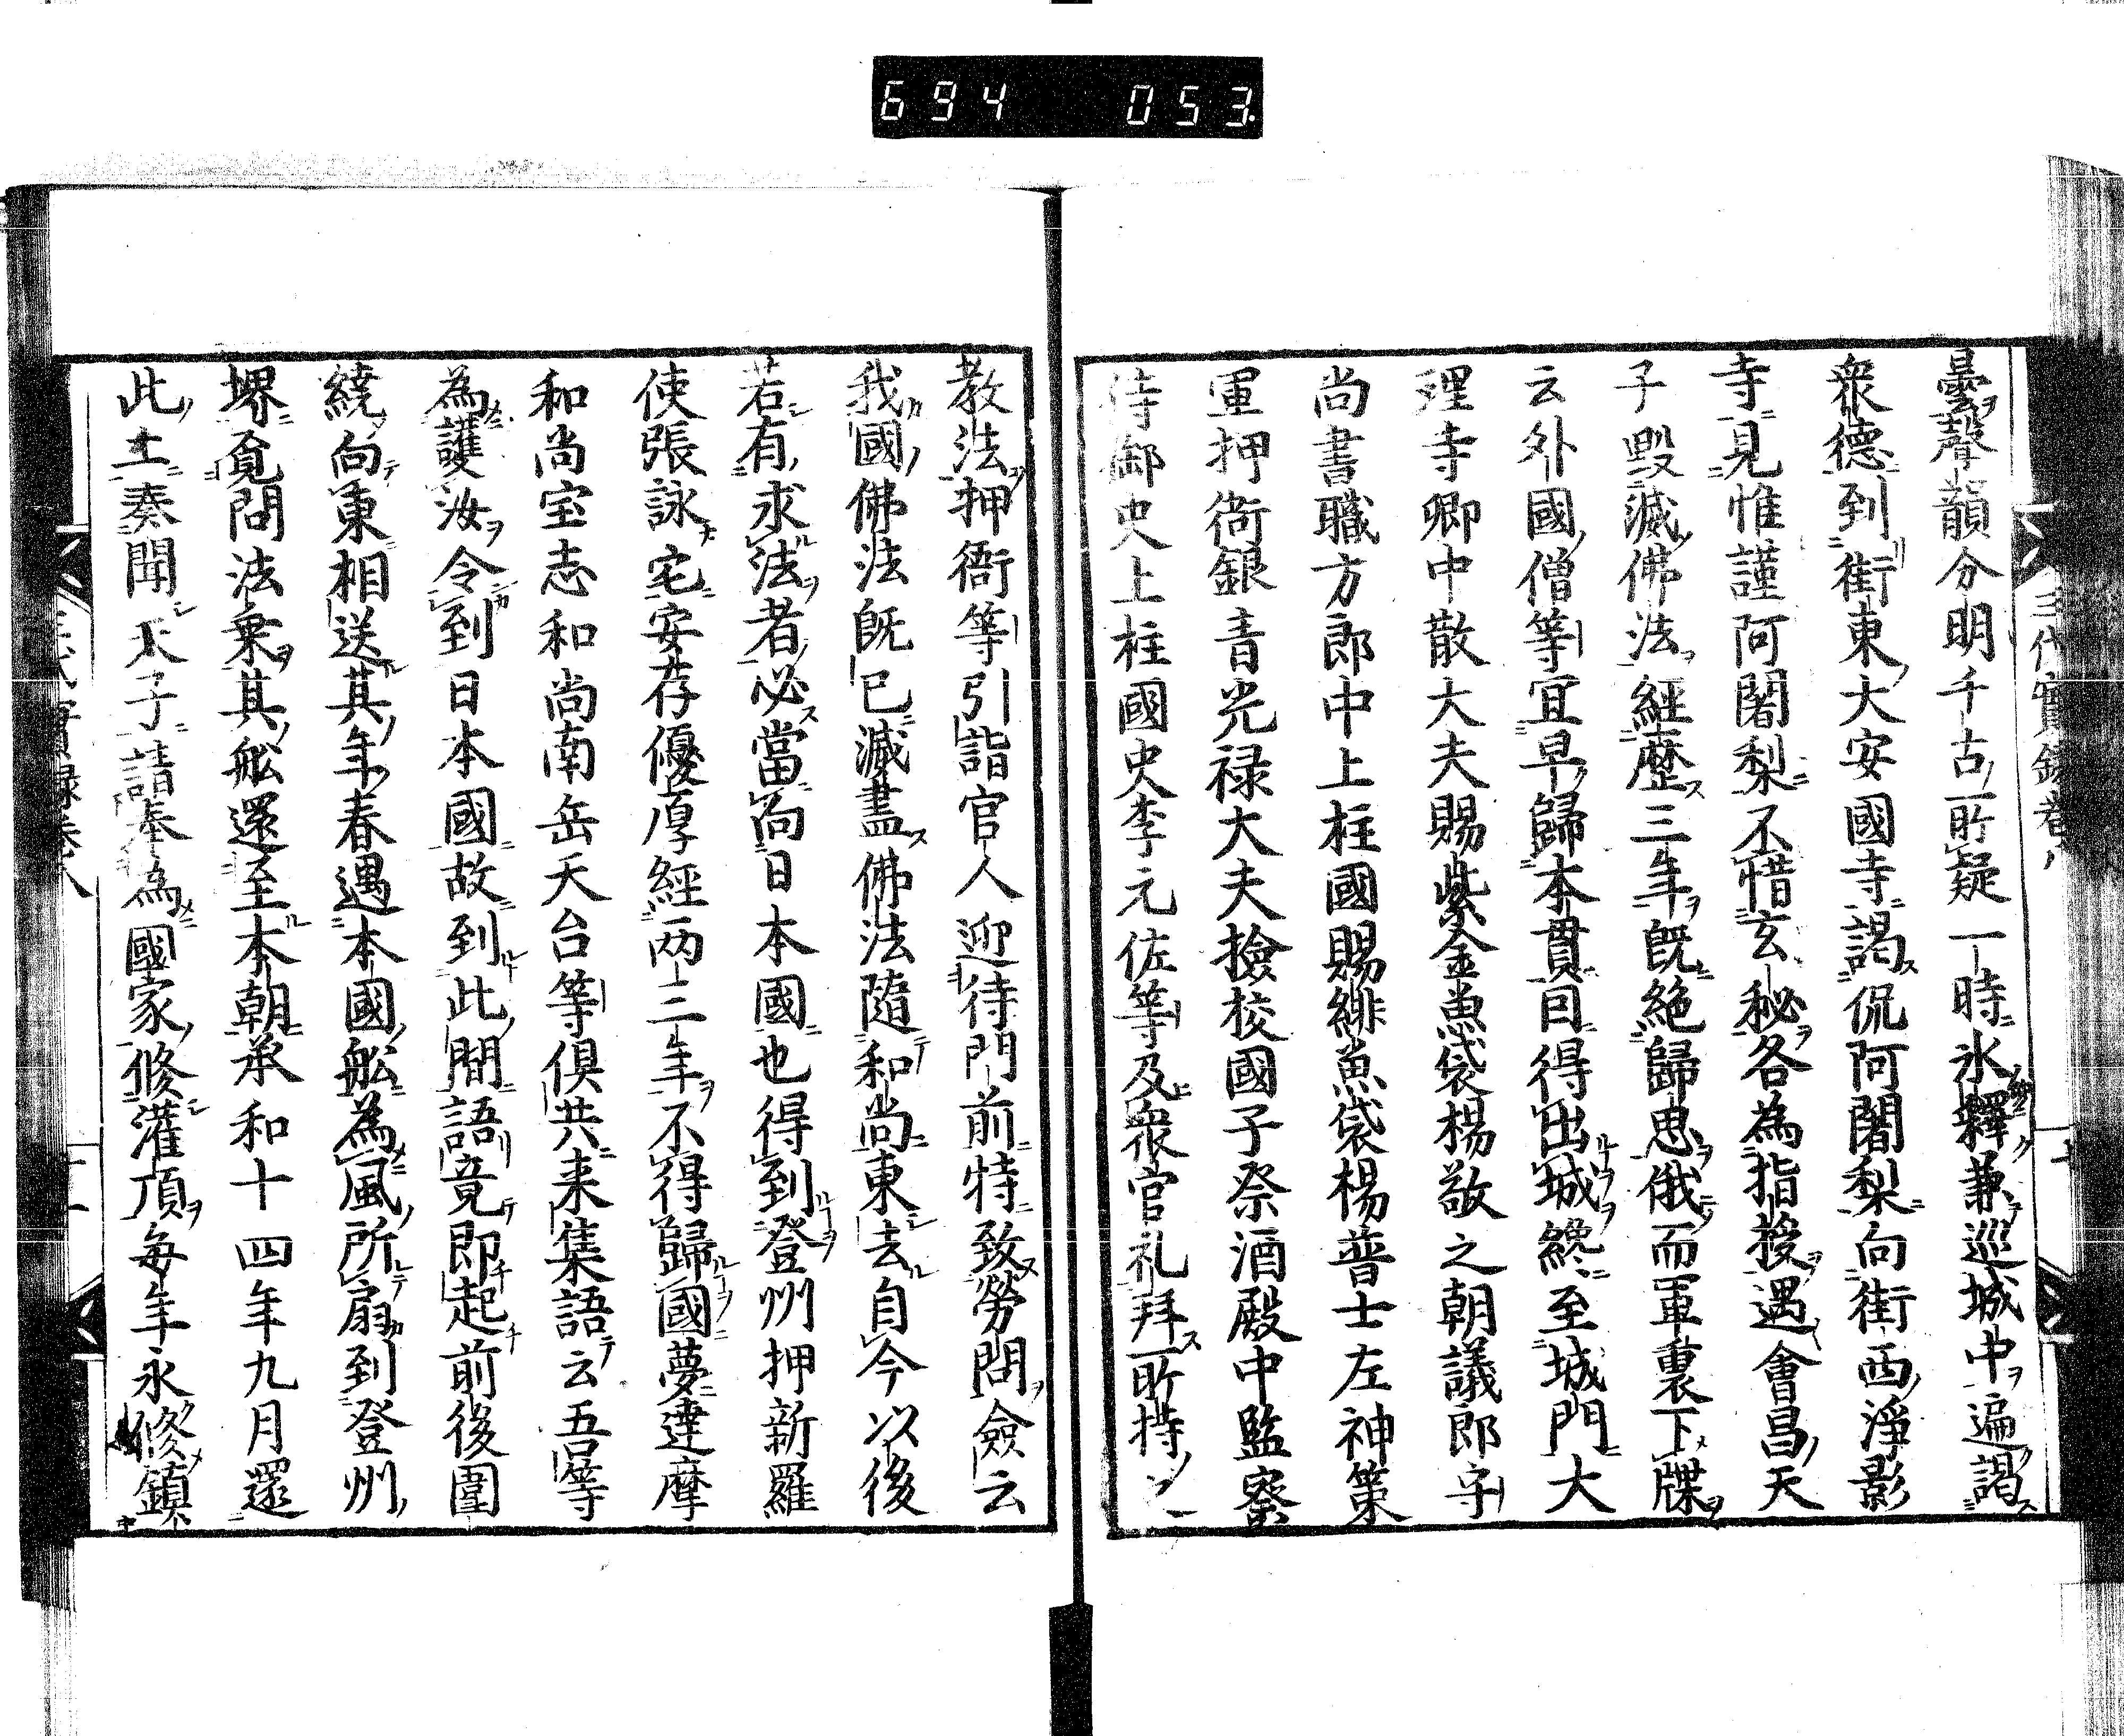 694 053
曇聲韻分明千古所疑一時氷釋兼巡城中遍謁
衆德到街東大安國寺謁侃阿闍梨向街西淨影
寺見惟謹阿闍梨不惜玄秘各為指授遇會昌天
子毀滅佛法經歷三年既絶歸思俄而軍裏下牒
云外國僧等宜早歸本貫曰得出城纔至城門大
理寺卿中散大夫賜紫金魚袋楊敬之朝議郎守
尚書職方郎中上柱國賜緋魚袋楊普士左神策
軍押衙銀青光禄大夫撿校國子祭酒殿中監察
侍御史上柱國史李元佐等及衆官礼拜所持之
教法押衙等引詣官人迎待門前特致勞問僉云
我國佛法既已滅盡佛法隨和尚東去自今以後
若有求法者必當向日本國也得到登州押新羅
使張詠宅安存優厚經两三年不得歸國夢達摩
和尚宝志和尚南岳天台等倶共来集語云吾等
為護汝令到日本國故到此間語竟即起前後圍
繞向東相送其年春遇本國舩為風所扇到登州
堺覔問法乗其舩還至本朝承和十四年九月還
此土奏聞天子請奉為國家修灌頂每年永修鎮